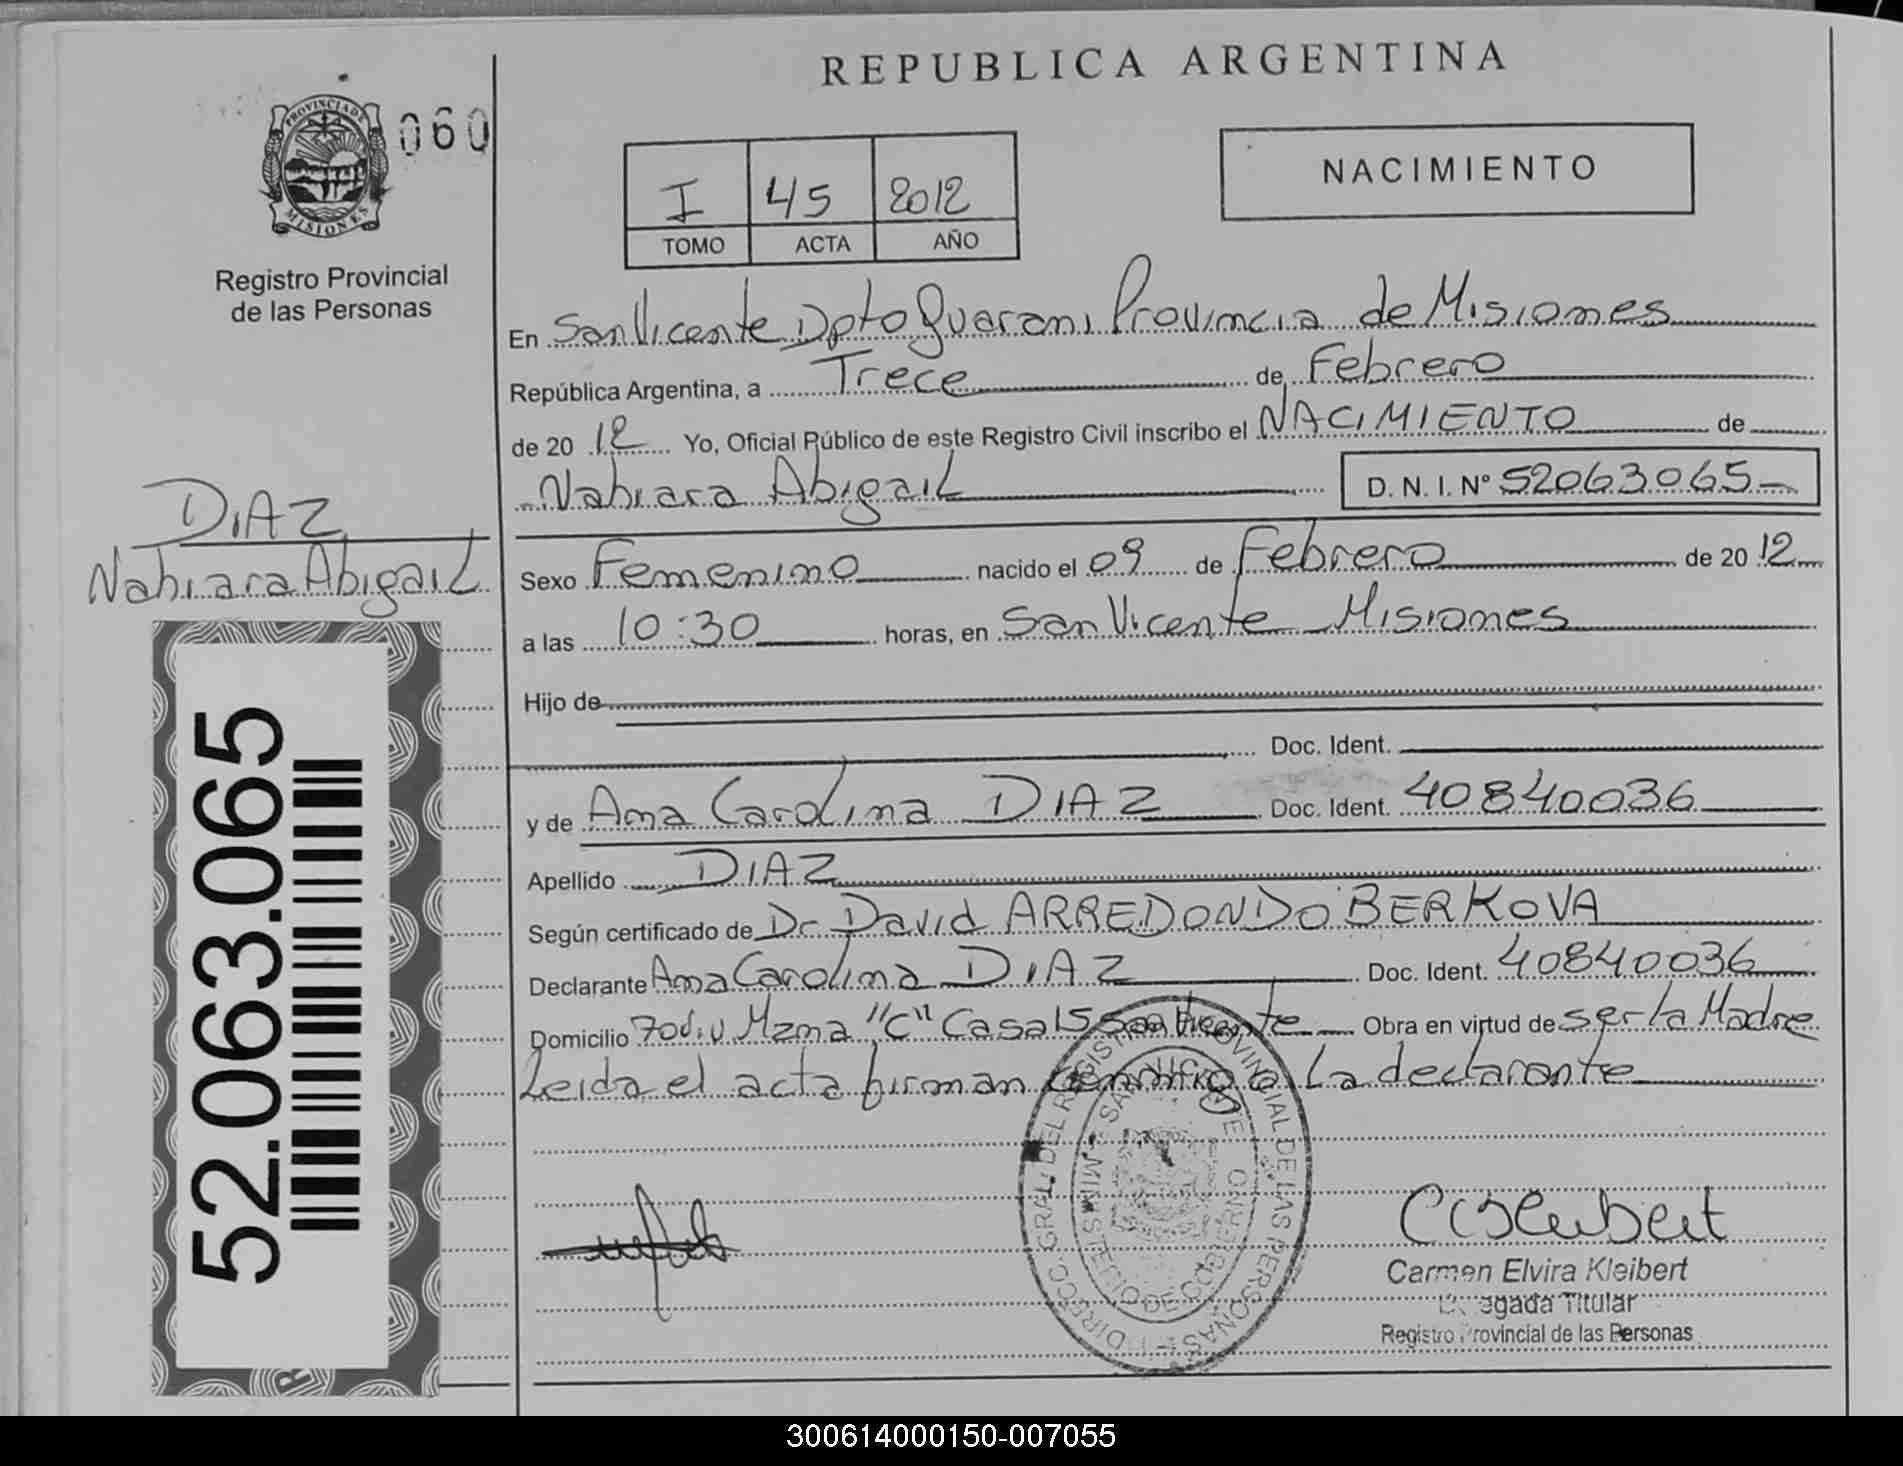 REPUBLICA ARGENTINA
PROVINCIA DE MISIONES
060
Registro Provincial
de las Personas
I 45 2012
TOMO ACTA AÑO
NACIMIENTO
En San Vicente Dpto Guarani Provincia de Misiones
República Argentina, a Trece de Febrero
de 20 12 Yo, Oficial Público de este Registro Civil inscribo el NACIMIENTO de
Nahiara Abigail D. N. I. N° 52063065
DIAZ
Nahiara Abigail
Sexo Femenino nacido el 09 de Febrero de 20 12
a las 10:30 horas, en San Vicente Misiones
Hijo de
Doc. Ident.
y de Ana Carolina DIAZ Doc. Ident. 40840036
Apellido DIAZ
Según certificado de Dr David ARREDONDO BERKOVA
Declarante Ana Carolina DIAZ Doc. Ident. 40840036
Domicilio 70 Viv Mzna "C" Casa 15 San Vicente Obra en virtud de ser la Madre
Leida el acta firman conmigo La declarante
52.063.065
DIRECC. GRAL. DEL REGISTRO PROVINCIAL DE LAS PERSONAS
SAN VICENTE
MINISTERIO DE GOBIERNO
CEKleibert
Carmen Elvira Kleibert
Delegada Titular
Registro Provincial de las Personas
300614000150-007055